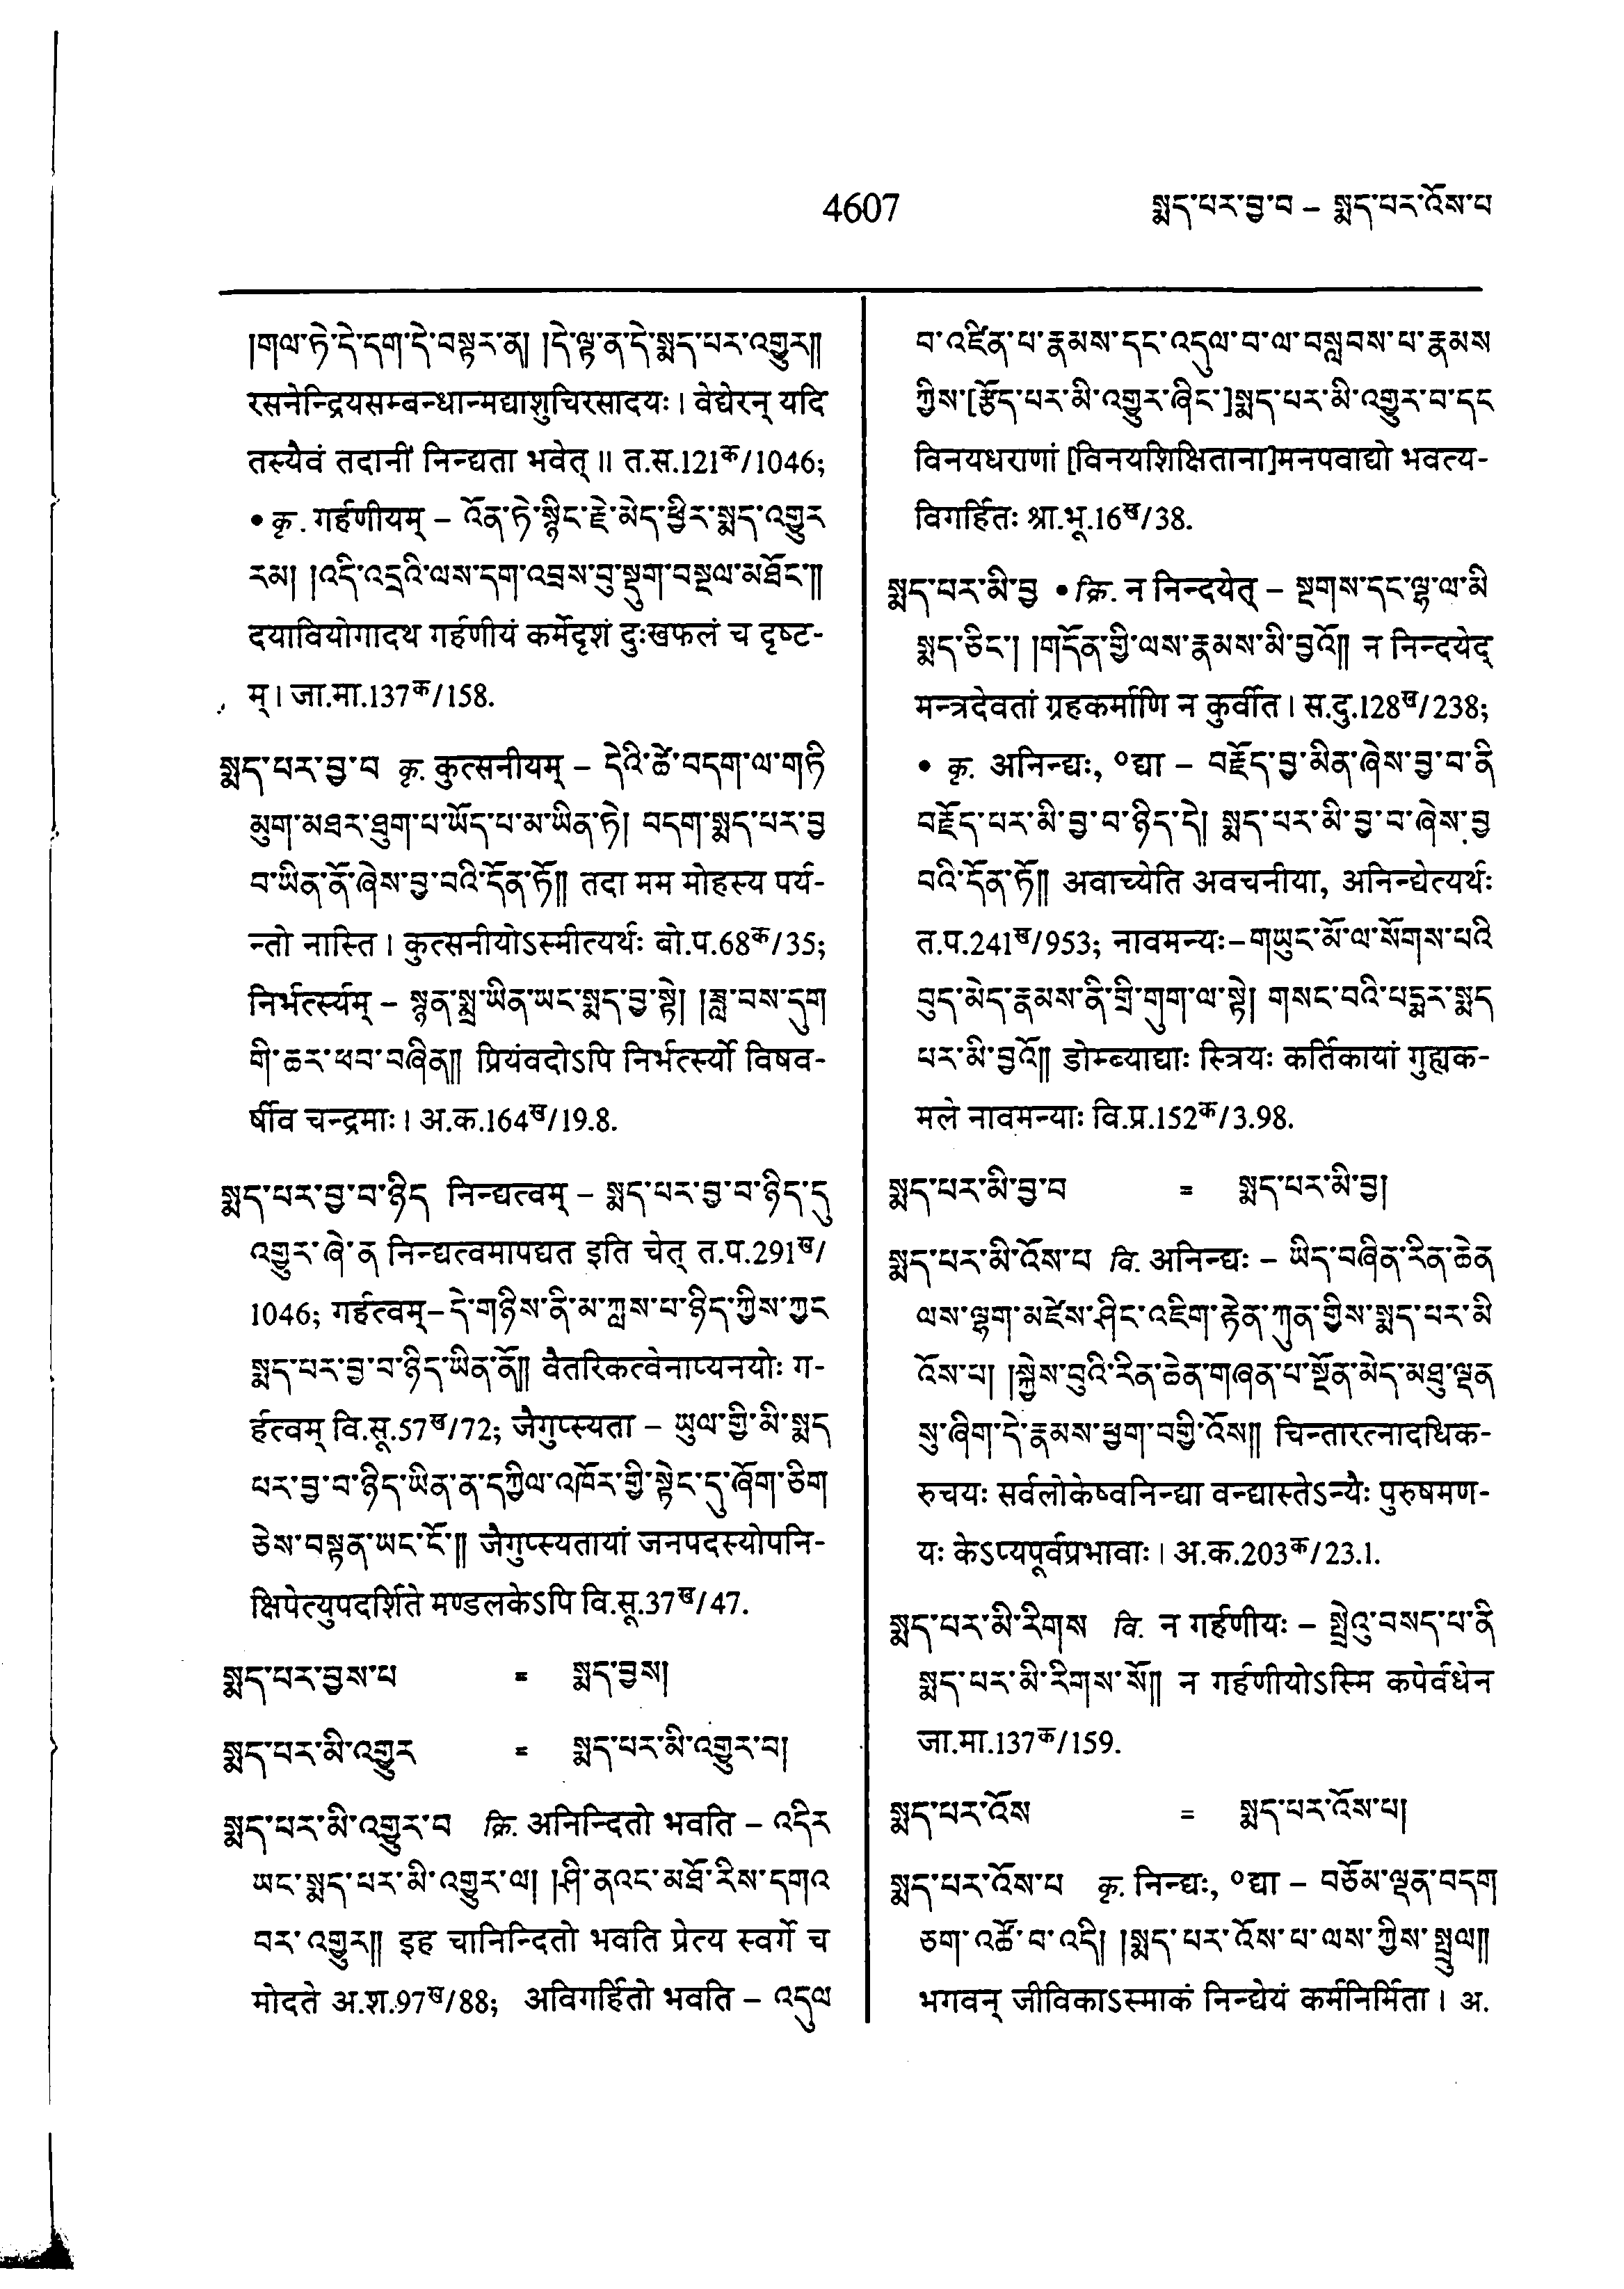 4607
སྨད་པར་བྱ་བ – སྨད་པར་འོས་པ
།གལ་ཏེ་དེ་དག་དེ་བསྟར་ན། །དེ་ལྟ་ན་དེ་སྨད་པར་འགྱུར།།
रसनेन्द्रियसम्बन्धान्मद्याशुचिरसादयः। वेद्येरन् यदि
तस्यैवं तदानीं निन्द्यता भवेत्॥ त.स.121क/1046;
• कृ. गर्हणीयम् – འོན་ཏེ་སྙིང་རྗེ་མེད་ཕྱིར་སྨད་འགྱུར
རམ། །འདི་འདྲའི་ལས་དག་འབྲས་བུ་སྡུག་བསྔལ་མཐོང་།།
दयावियोगादथ गर्हणीयं कर्मेदृशं दुःखफलं च दृष्ट-
म्। जा.मा.137क/158.
སྨད་པར་བྱ་བ कृ. कुत्सनीयम् – དེའི་ཚེ་བདག་ལ་གཏི
མུག་མཐར་ཐུག་པ་ཡོད་པ་མ་ཡིན་ཏེ། བདག་སྨད་པར་བྱ
བ་ཡིན་ནོ་ཞེས་བྱ་བའི་དོན་ཏོ།། तदा मम मोहस्य पर्य-
न्तो नास्ति। कुत्सनीयोऽस्मीत्यर्थः बो.प.68क/35;
निर्भर्त्स्यम् – སྙན་སྨྲ་ཡིན་ཡང་སྨད་བྱ་སྟེ། །ཟླ་བས་དུག
གི་ཆར་ཕབ་བཞིན།། प्रियंवदोऽपि निर्भर्त्स्यो विषव-
र्षीव चन्द्रमाः। अ.क.164ख/19.8.
སྨད་པར་བྱ་བ་ཉིད निन्द्यत्वम् – སྨད་པར་བྱ་བ་ཉིད་དུ
འགྱུར་ཞེ་ན निन्द्यत्वमापद्यत इति चेत् त.प.291ख/
1046; गर्हत्वम्–དེ་གཉིས་ནི་མ་ཀླས་པ་ཉིད་ཀྱིས་ཀྱང
སྨད་པར་བྱ་བ་ཉིད་ཡིན་ནོ།། वैतरिकत्वेनाप्यनयोः ग-
र्हत्वम् वि.सू.57ख/72; जैगुप्स्यता – ཡུལ་གྱི་མི་སྨད
པར་བྱ་བ་ཉིད་ཡིན་ན་དཀྱིལ་འཁོར་གྱི་སྟེང་དུ་ཞོག་ཅིག
ཅེས་བསྟན་ཡང་ངོ་།། जैगुप्स्यतायां जनपदस्योपनि-
क्षिपेत्युपदर्शिते मण्डलकेऽपि वि.सू.37ख/47.
སྨད་པར་བྱས་པ = སྨད་བྱས།
སྨད་པར་མི་འགྱུར = སྨད་པར་མི་འགྱུར་བ།
སྨད་པར་མི་འགྱུར་བ क्रि. अनिन्दितो भवति – འདིར
ཡང་སྨད་པར་མི་འགྱུར་ལ། །ཤི་ནའང་མཐོ་རིས་དགའ
བར་འགྱུར།། इह चानिन्दितो भवति प्रेत्य स्वर्गे च
मोदते अ.श.97ख/88; अविगर्हितो भवति – འདུལ
བ་འཛིན་པ་རྣམས་དང་འདུལ་བ་ལ་བསླབས་པ་རྣམས
ཀྱིས་[རྩོད་པར་མི་འགྱུར་ཞིང་]སྨད་པར་མི་འགྱུར་བ་དང
विनयधराणां [विनयशिक्षिताना]मनपवाद्यो भवत्य-
विगर्हितः श्रा.भू.16ख/38.
སྨད་པར་མི་བྱ • क्रि. न निन्दयेत् – སྔགས་དང་ལྷ་ལ་མི
སྨད་ཅིང་། །གདོན་གྱི་ལས་རྣམས་མི་བྱའོ།། न निन्दयेद्
मन्त्रदेवतां ग्रहकर्माणि न कुर्वीत। स.दु.128ख/238;
• कृ. अनिन्द्यः, ०द्या – བརྗོད་བྱ་མིན་ཞེས་བྱ་བ་ནི
བརྗོད་པར་མི་བྱ་བ་ཉིད་དེ། སྨད་པར་མི་བྱ་བ་ཞེས་བྱ
བའི་དོན་ཏོ།། अवाच्येति अवचनीया, अनिन्द्येत्यर्थः
त.प.241ख/953; नावमन्यः–གཡུང་མོ་ལ་སོགས་པའི
བུད་མེད་རྣམས་ནི་གྲི་གུག་ལ་སྟེ། གསང་བའི་པདྨར་སྨད
པར་མི་བྱའོ།། डोम्ब्याद्याः स्त्रियः कर्तिकायां गुह्यक-
मले नावमन्याः वि.प्र.152क/3.98.
སྨད་པར་མི་བྱ་བ = སྨད་པར་མི་བྱ།
སྨད་པར་མི་འོས་པ वि. अनिन्द्यः – ཡིད་བཞིན་རིན་ཆེན
ལས་ལྷག་མཛེས་ཤིང་འཇིག་རྟེན་ཀུན་གྱིས་སྨད་པར་མི
འོས་པ། །སྐྱེས་བུའི་རིན་ཆེན་གཞན་པ་སྔོན་མེད་མཐུ་ལྡན
སུ་ཞིག་དེ་རྣམས་ཕྱག་བགྱི་འོས།། चिन्तारत्नादधिक-
रुचयः सर्वलोकेष्वनिन्द्या वन्द्यास्तेऽन्यैः पुरुषमण-
यः केऽप्यपूर्वप्रभावाः। अ.क.203क/23.1.
སྨད་པར་མི་རིགས वि. न गर्हणीयः – སྤྲེའུ་བསད་པ་ནི
སྨད་པར་མི་རིགས་སོ།། न गर्हणीयोऽस्मि कपेर्वधेन
जा.मा.137क/159.
སྨད་པར་འོས = སྨད་པར་འོས་པ།
སྨད་པར་འོས་པ कृ. निन्द्यः, ०द्या – བཅོམ་ལྡན་བདག
ཅག་འཚོ་བ་འདི། །སྨད་པར་འོས་པ་ལས་ཀྱིས་སྤྲུལ།།
भगवन् जीविकाऽस्माकं निन्द्येयं कर्मनिर्मिता। अ.